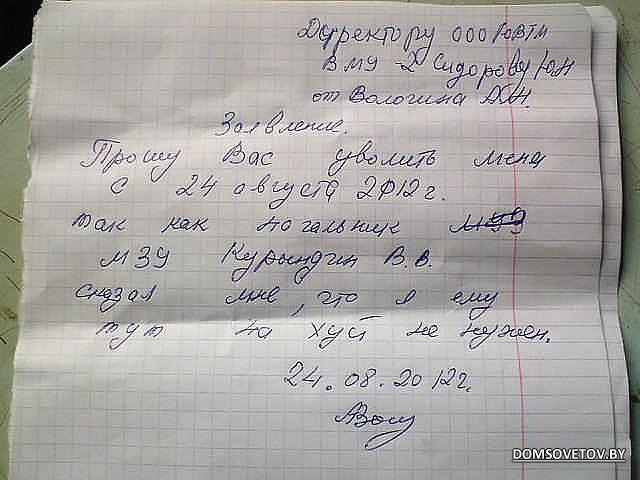 Директору ООО ЮВТМ
ВМУ-2 Сидорову ЮН
от Вологина А.Н.
Заявление.
Прошу Вас уволить меня
с 24 августа 2012 г.
так как начальник
МЗУ Курындин В.В.
сказал мне, что я ему
тут на хуй не нужен.
24.08.2012г.
DOMSOVETOV.BY